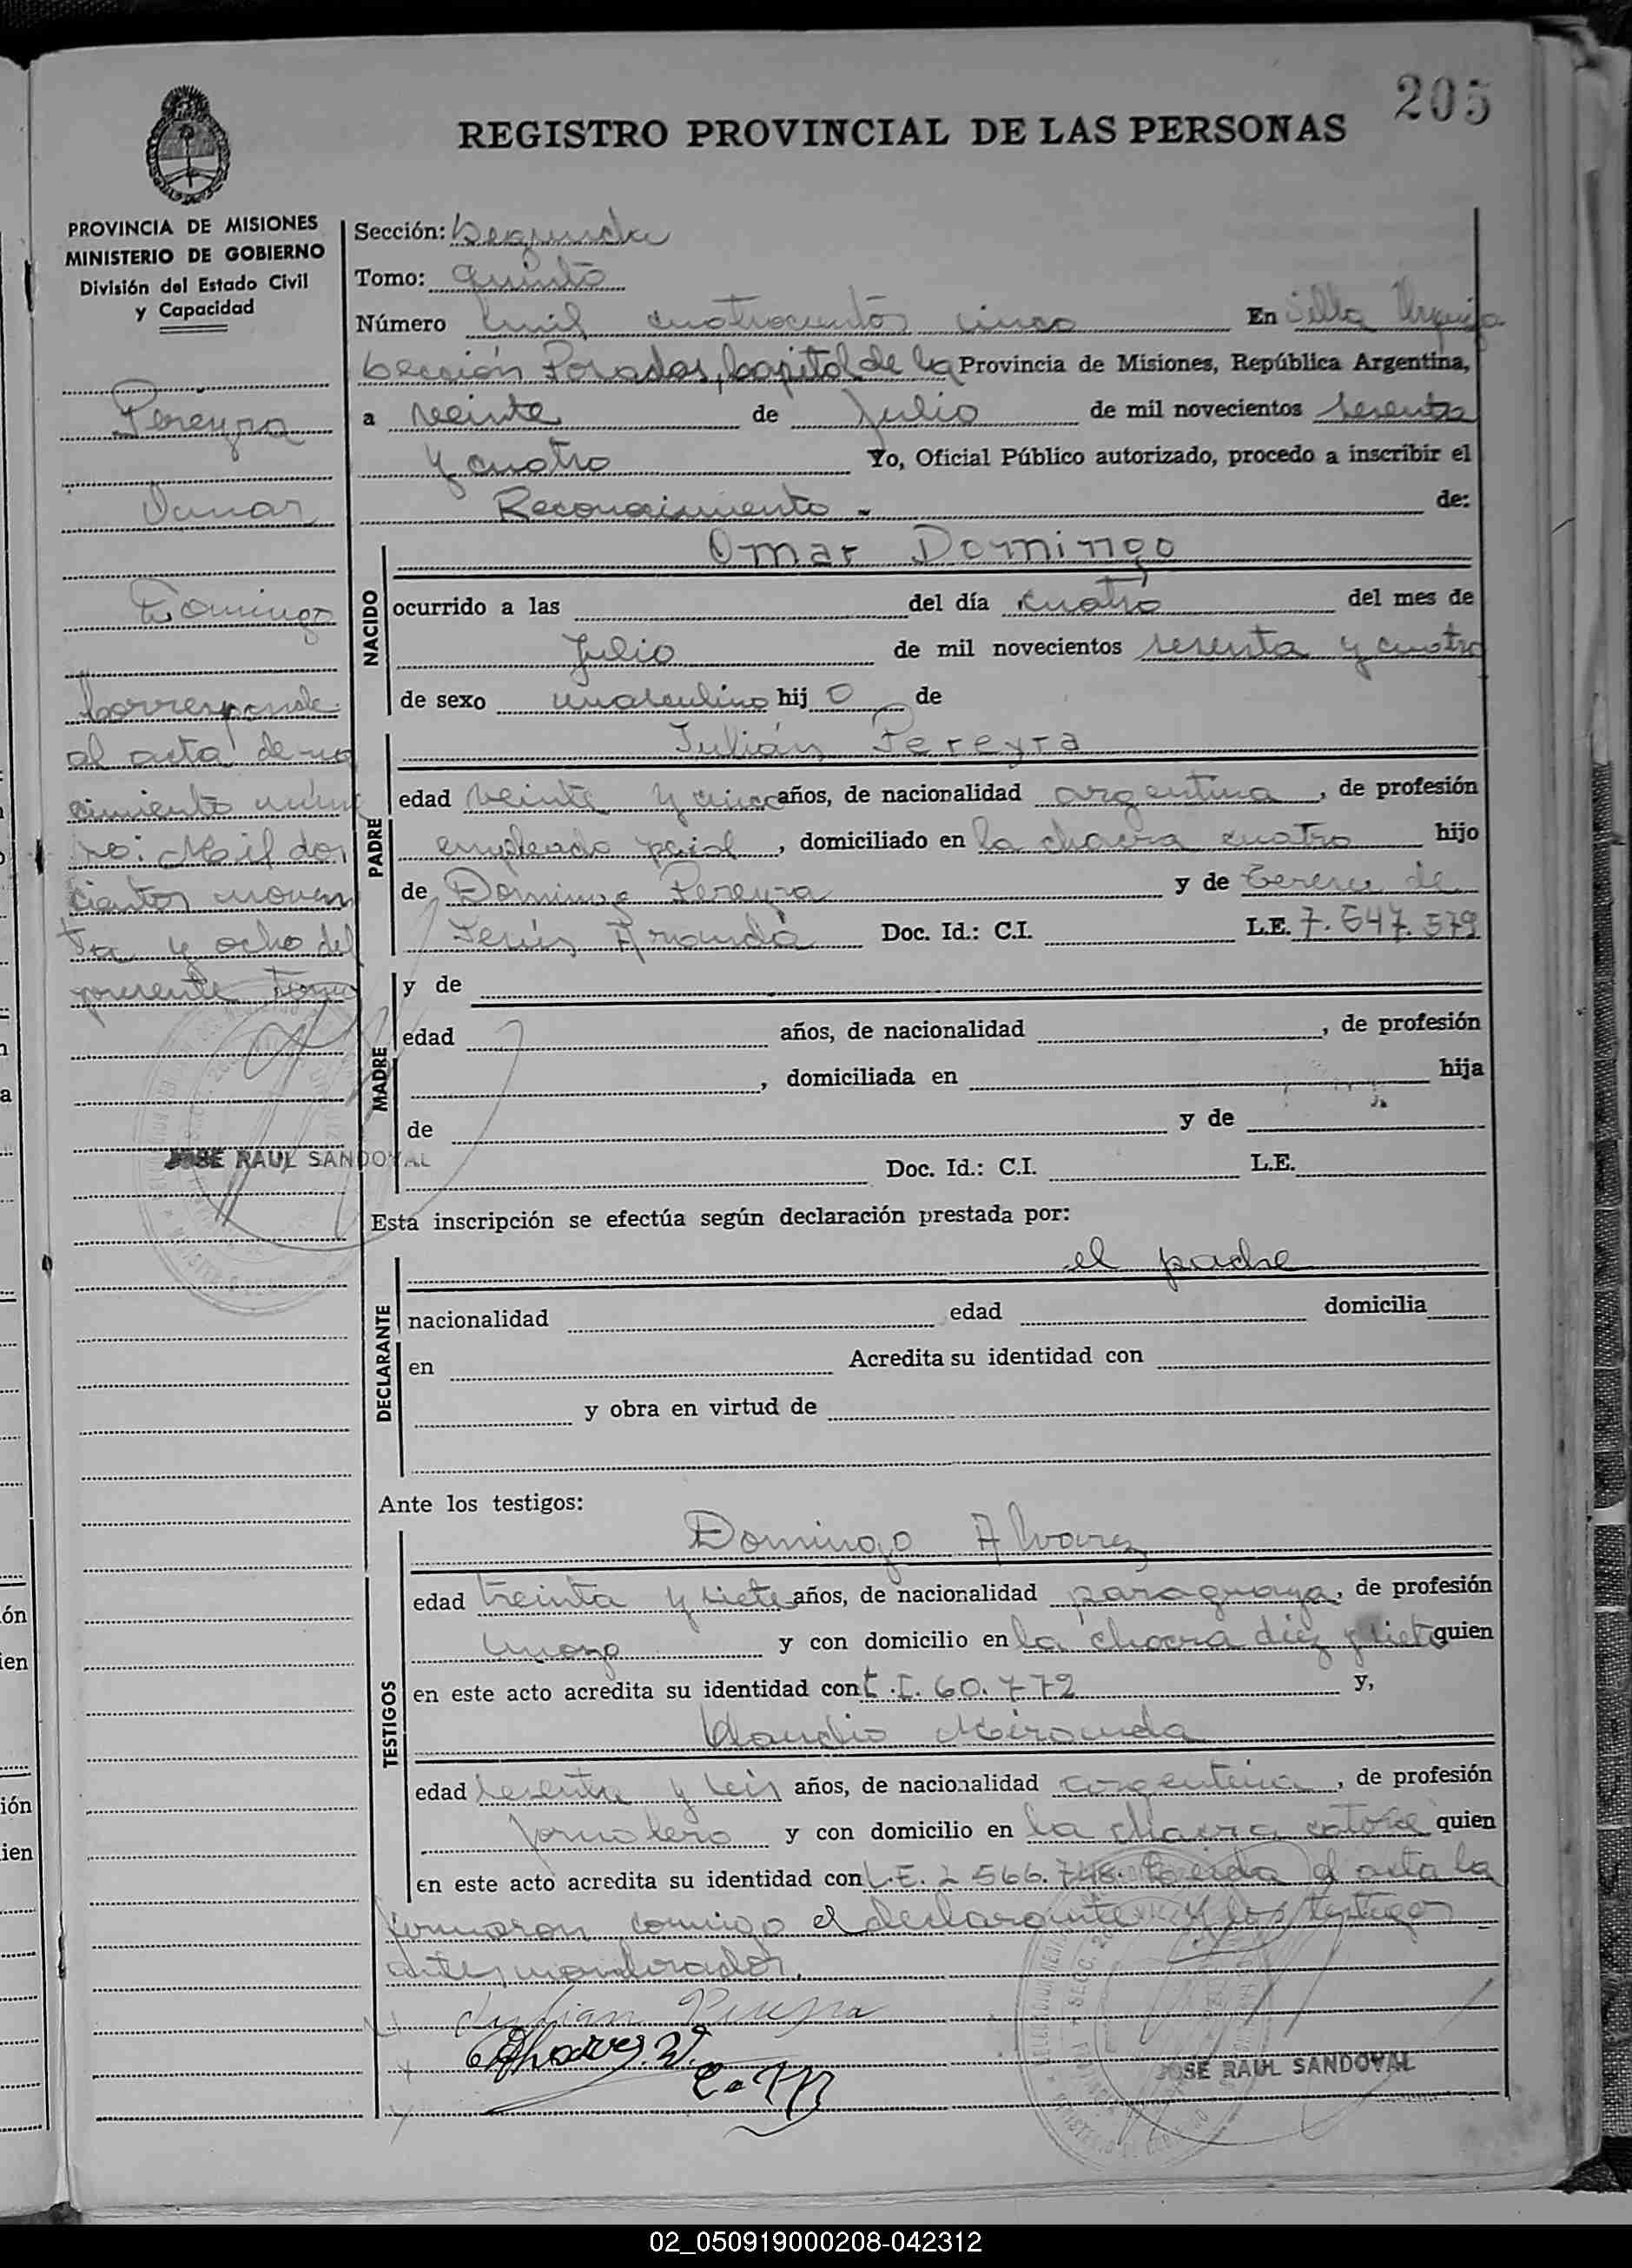 205
REGISTRO PROVINCIAL DE LAS PERSONAS
PROVINCIA DE MISIONES
MINISTERIO DE GOBIERNO
División del Estado Civil
y Capacidad
Pereyra
Omar
Domingo
Corresponde
al acta de na
cimiento núme
ro: Mil dos
cientos noven
ta y ocho del
presente Tomo
JOSE RAUL SANDOVAL
Sección: Segunda
Tomo: quinto
Número mil cuatrocientos cinco En Villa Urquiza
Sección Posadas, Capital de la Provincia de Misiones, República Argentina,
a veinte de Julio de mil novecientos sesenta
y cuatro Yo, Oficial Público autorizado, procedo a inscribir el
Reconocimiento - de:
NACIDO
Omar Domingo
ocurrido a las del día cuatro del mes de
Julio de mil novecientos sesenta y cuatro
de sexo masculino hij o de
PADRE
Julián Pereyra
edad veinte y cinco años, de nacionalidad argentina, de profesión
empleado , domiciliado en la chacra cuatro hijo
de Domingo Pereyra y de Teresa de
Jesús Aranda Doc. Id.: C.I. L.E. 7.647.579
MADRE
y de
edad años, de nacionalidad , de profesión
, domiciliada en hija
de y de
Doc. Id.: C.I. L.E.
Esta inscripción se efectúa según declaración prestada por:
DECLARANTE
el padre
nacionalidad edad domicilia
en Acredita su identidad con
y obra en virtud de
Ante los testigos:
TESTIGOS
Domingo Alvarez
edad treinta y siete años, de nacionalidad paraguaya, de profesión
mozo y con domicilio en la chacra diez y siete quien
en este acto acredita su identidad con C.I. 60.772 y,
Claudio Miranda
edad sesenta y seis años, de nacionalidad argentina, de profesión
jornalero y con domicilio en la chacra catorce quien
en este acto acredita su identidad con L.E. 2 566.748. Leida el acta la
firmaron conmigo el declarante y los testigos
antes nombrados.
Julian Pereyra
JOSE RAUL SANDOVAL
02_050919000208-042312